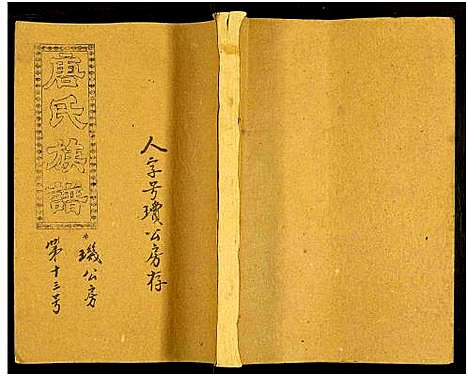 人字号瓆公房存
唐氏族譜
璣公房
第十三号